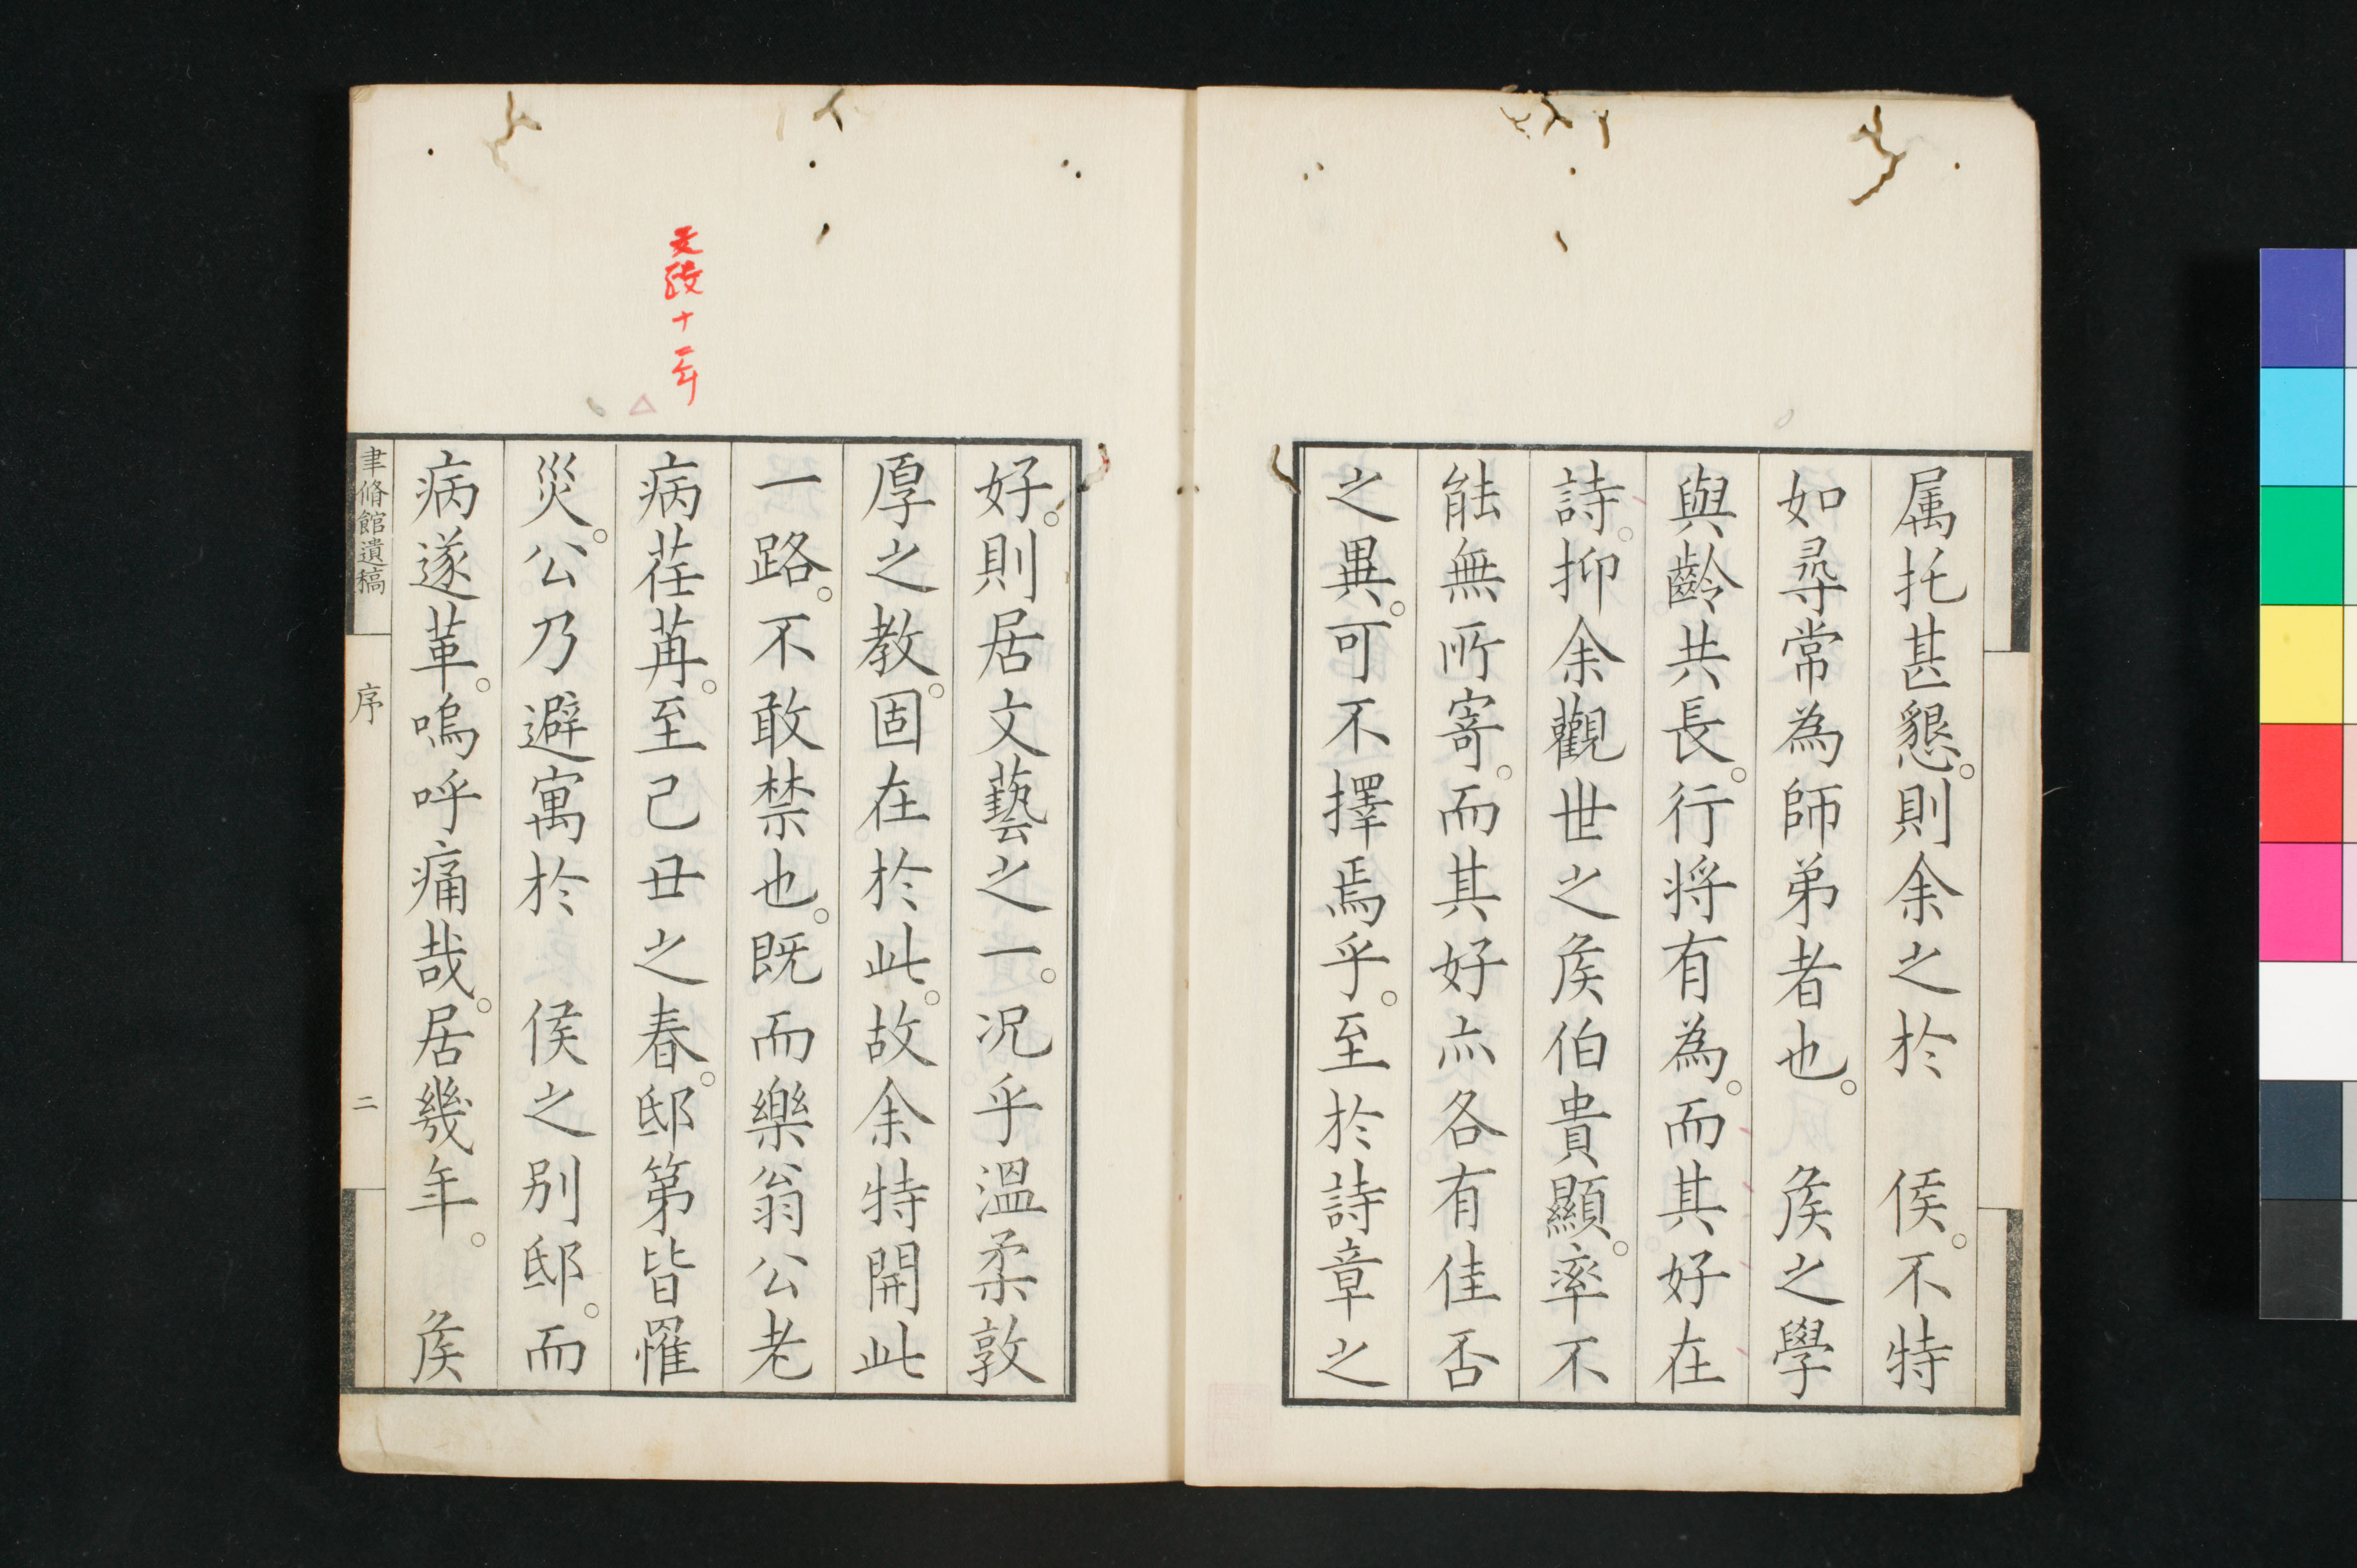 属托甚懇。則余之於　侯。不特
如尋常為師弟者也。　矦之學
與齡共長。行将有為。而其好在
詩。抑余觀世之矦伯貴顯。率不
能無所寄。而其好亦各有佳否
之異。可不擇焉乎。至於詩章之
好。則居文藝之一。况乎溫柔敦
厚之教。固在於此。故余特開此
一路。不敢禁也。既而樂翁公老
病荏苒。至己丑之春。邸第皆罹
災。公乃避寓於　侯之别邸。而
病遂革。嗚呼痛哉。居幾年。　矦
文政十二年
聿脩館遺稿
序
二